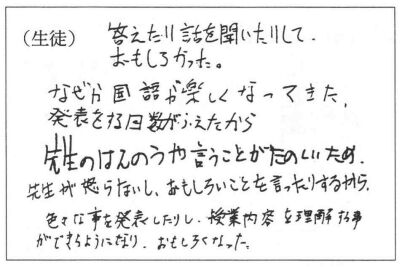 （生徒） 答えたり話を聞いたりして、
おもしろかった。
なぜか国語が楽しくなってきた。
発表をする回数がふえたから
先生のはんのうや言うことがたのしいため。
先生が怒らないし、おもしろいことを言ったりするから。
色々な事を発表したりし、授業内容を理解する事
ができるようになり、おもしろくなった。